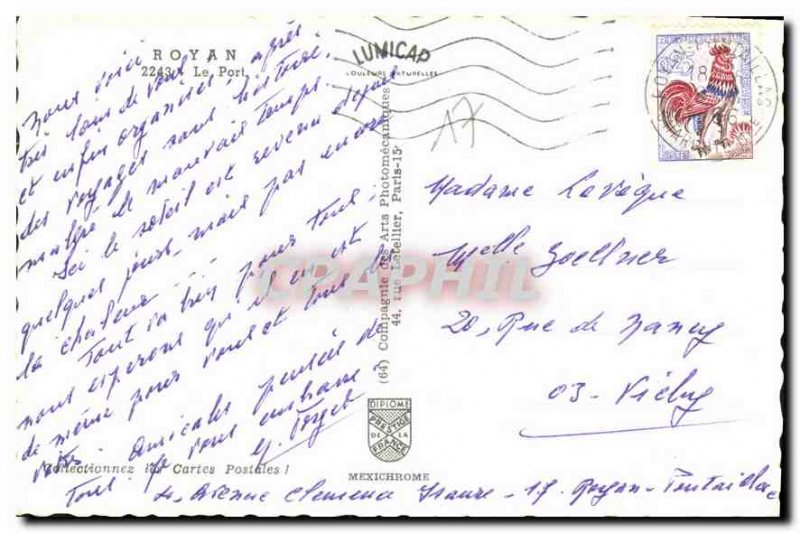 ROYAN
2243. Le Port
nous voici, après
très loin de vous
et enfin organisés,
des voyages sans histoire.
malgré le mauvais temps
Ici le soleil est revenu depuis
quelques jours, mais pas encore
la chaleur ...
Tout va bien pour tous,
nous espérons qu'il en est
de même pour vous et tous les
vôtres. Amicales pensées de
Tous. Je vous embrasse
Collectionnez les Cartes Postales !
4, Avenue Clemence Isaure - 17 Royan-Pontaillac
LUMICAP
COULEURS NATURELLES
(64) Compagnie des Arts Photomécaniques
44, rue Letellier, Paris-15
DIPLOME
PRESTIGE
DE LA
FRANCE
MEXICHROME
17
Madame Levêque
Melle Zoellner
20, Rue de Nancy
03-Vichy
CPAPHIL